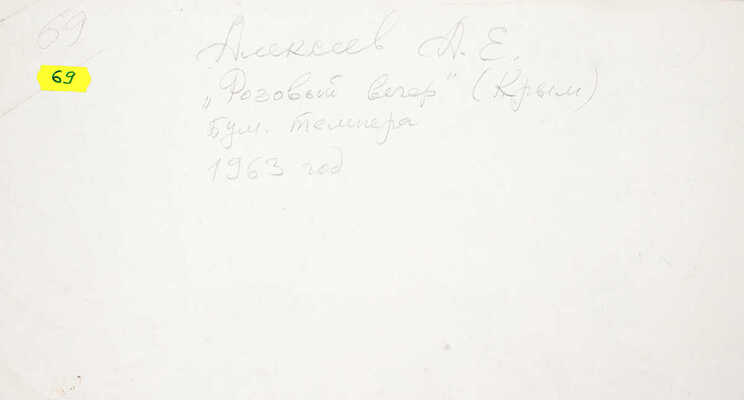 69
69
Алексеев А. Е.
„Розовый вечер" (Крым)
Бум. темпера
1963 год